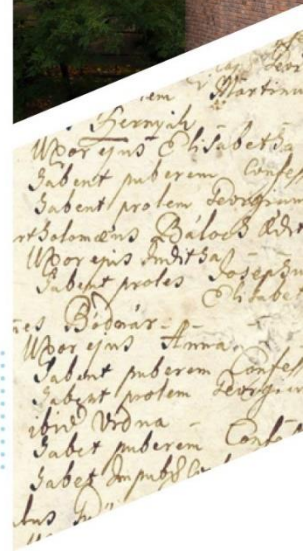 Martinu
Hernyák
Uxor ejus Elisabetha
Habent puberem Confes
Habent prolem Georgium
rtholomæus Baloch Ædit
Uxor ejus Juditha
Habent proles Joseph
Elisabe
nes Bodnár
Uxor ejus Anna
Habent puberem Confes
Habent prolem Georgiu
ibid Vrona
Habet puberem Conf
Habet Impub